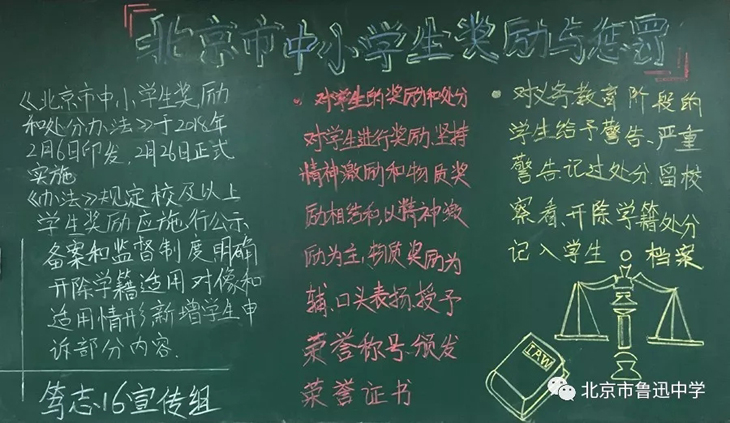 北京市中小学生奖励与惩罚
《北京市中小学生奖励
和处分办法》于2018年
2月6日印发，2月26日正式
实施
《办法》规定校及以上
学生奖励应施行公示、
备案和监督制度明确
开除学籍适用对像和
适用情形，新增学生申
诉部分内容.
笃志.16宣传组
对学生的奖励和处分
对学生进行奖励、坚持
精神激励和物质奖
励相结和,以精神激
励为主,物质奖励为
辅、口头表扬、授予
荣誉称号、颁发
荣誉证书
对义务教育阶段的
学生给予警告、严重
警告、记过处分、留校
察看、开除学籍处分
记入学生 档案
LAW
北京市鲁迅中学